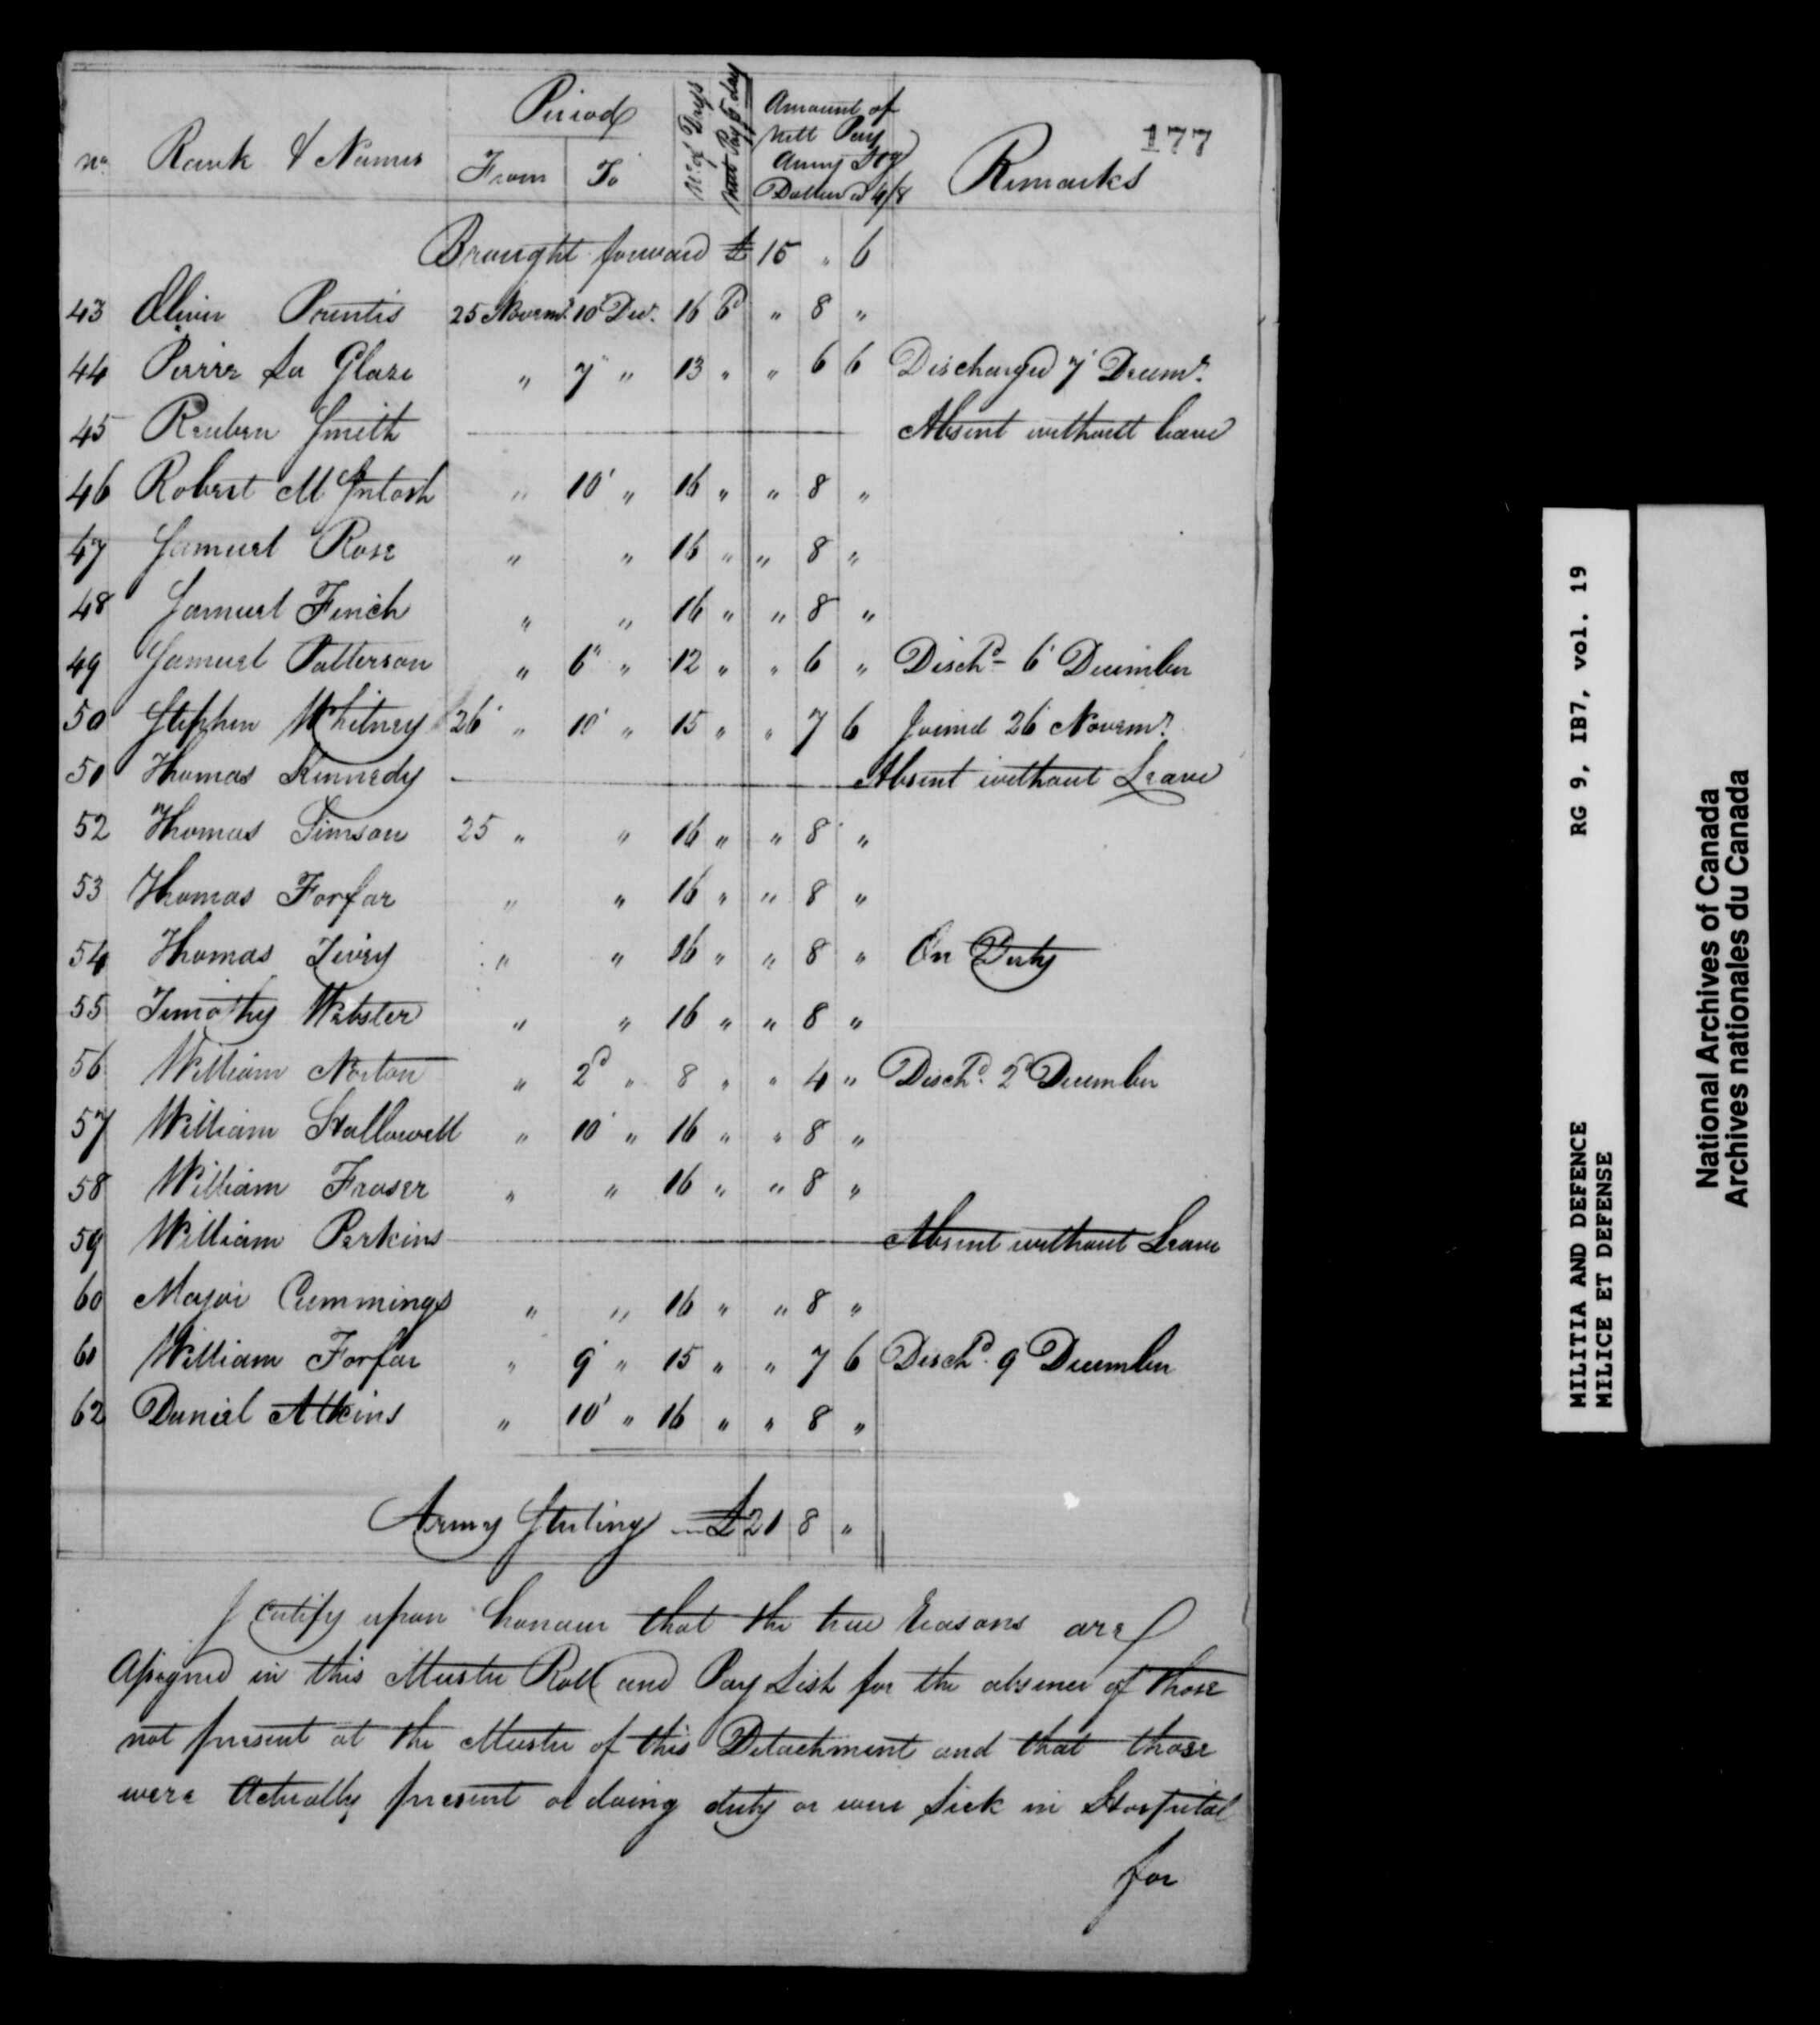 177
No. Rank & Names Period From To No. of Days Nett Pay 6d day Amount of Nett Pay Army Stg Dollar @ 4/8 Remarks
Brought forward £ 15 " 6
43 Oliver Prentis 25 Novemr. 10' Decr. 16 6d " 8 "
44 Pierre La Glaze " 7" " 13 " " 6 6 Discharged 7' Decemr.
45 Reuben Smith Absent without leave
46 Robert McIntosh " 10' " 16 " " 8 "
47 Samuel Rose " " 16 " " 8 "
48 Samuel Finch " " 16 " " 8 "
49 Samuel Patterson " 6" " 12 " " 6 " Dischd. 6' December
50 Stephen Whitney 26' " 10' " 15 " " 7 6 Joined 26 Novemr.
51 Thomas Kennedy Absent without Leave
52 Thomas Simson 25 " " 16 " " 8 "
53 Thomas Forfar " " 16 " " 8 "
54 Thomas Tivey " " 16 " " 8 " On Duty
55 Timothy Webster " " 16 " " 8 "
56 William Norton " 2d " 8 " " 4 " Dischd. 2d December
57 William Hallowell " 10' " 16 " " 8 "
58 William Fraser " " 16 " " 8 "
59 William Perkins Absent without Leave
60 Major Cummings " " 16 " " 8 "
61 William Forfar " 9' " 15 " " 7 6 Dischd. 9 December
62 Daniel Atkins " 10' " 16 " " 8 "
Army Sterling £ 21 8 "
I Certify upon honour that the true Reasons are
Assigned in this Muster Roll and Pay List for the absence of those
not present at the Muster of this Detachment and that those
were Actually present or doing duty or were Sick in Hospital
for
MILITIA AND DEFENCE RG 9, IB7, vol. 19
MILICE ET DEFENSE
National Archives of Canada
Archives nationales du Canada